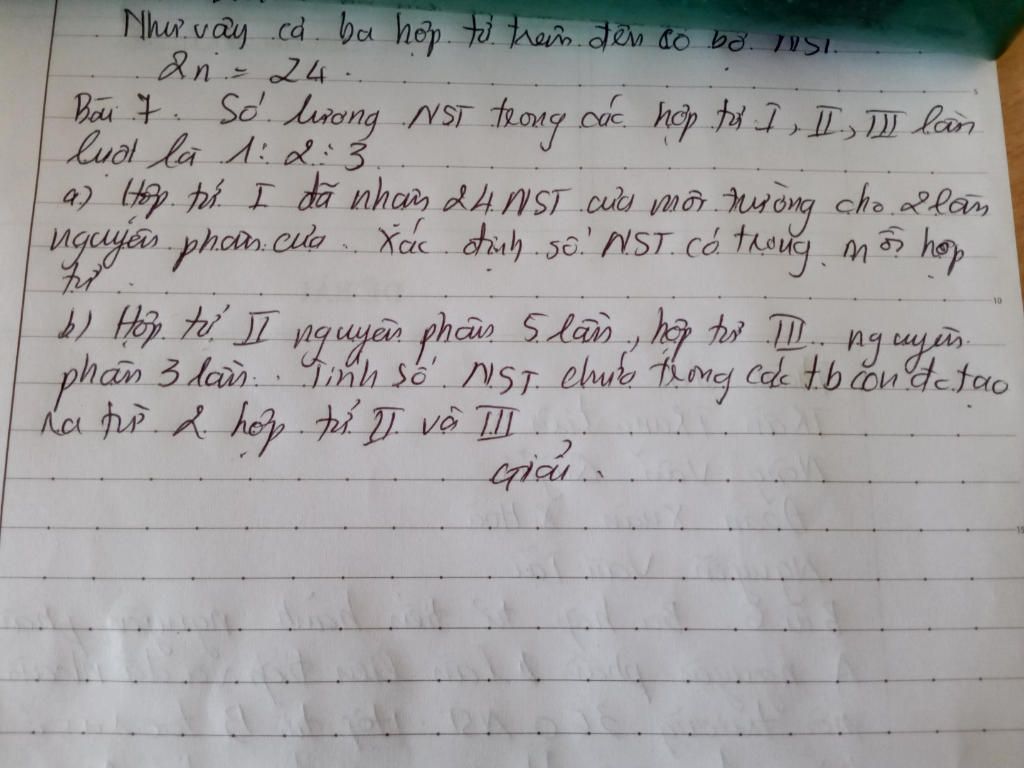 Như vậy cả ba hợp tử trên đều có bộ NST.
2n = 24.
Bài 7. Số lượng NST trong các hợp tử I, II, III lần
lượt là 1:2:3
a) Hợp tử I đã nhận 24 NST của môi trường cho 2 lần
nguyên phân của. Xác định số NST có trong mỗi hợp
tử.
b) Hợp tử II nguyên phân 5 lần, hợp tử III nguyên
phân 3 lần. Tính số NST chứa trong các tb con đc tạo
ra từ 2 hợp tử II và III
Giải.
5
10
15